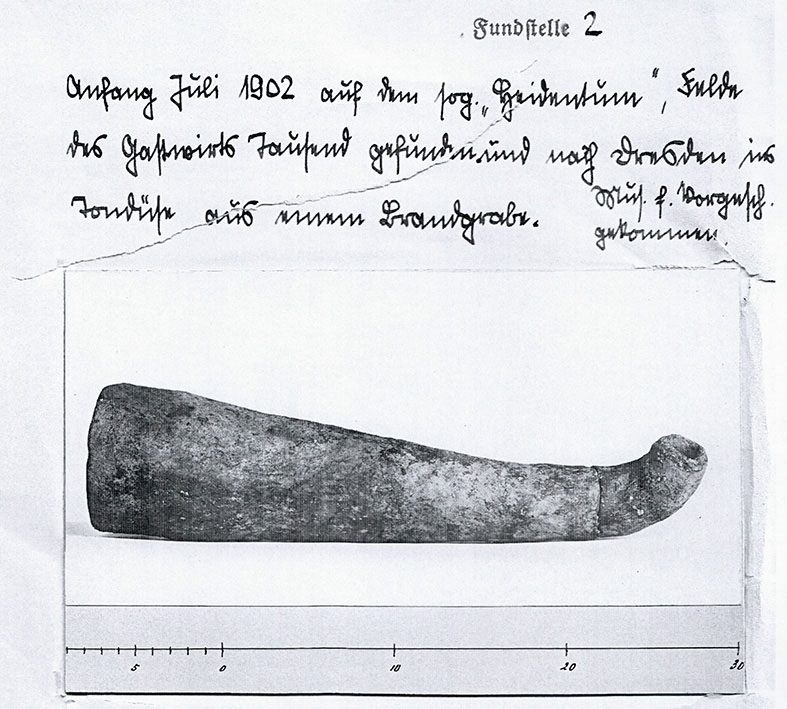 Fundstelle 2
Anfang Juli 1902 auf dem sog. „Heidentum“, Felde
des Gastwirts Tausend gefunden und nach Dresden ins
Mus. f. Vorgesch.
gekommen.
Tondüse aus einem Brandgrabe.
5 0 10 20 30